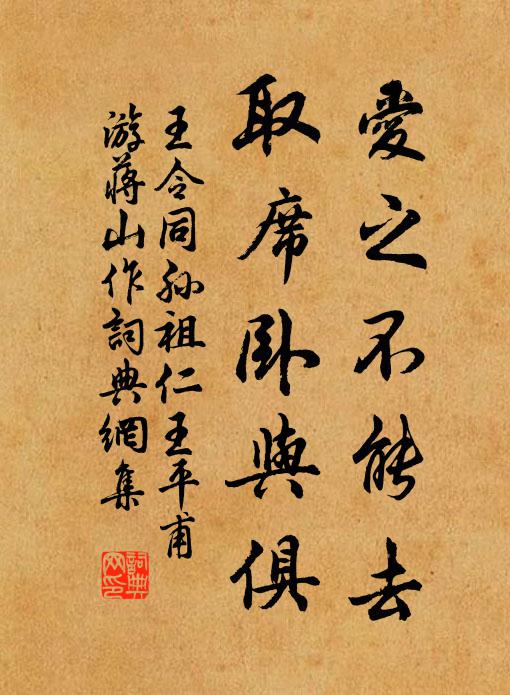 愛之不能去
取席卧與俱
王令同孙祖仁王平甫
游蔣山作詞典網集
詞典
网印